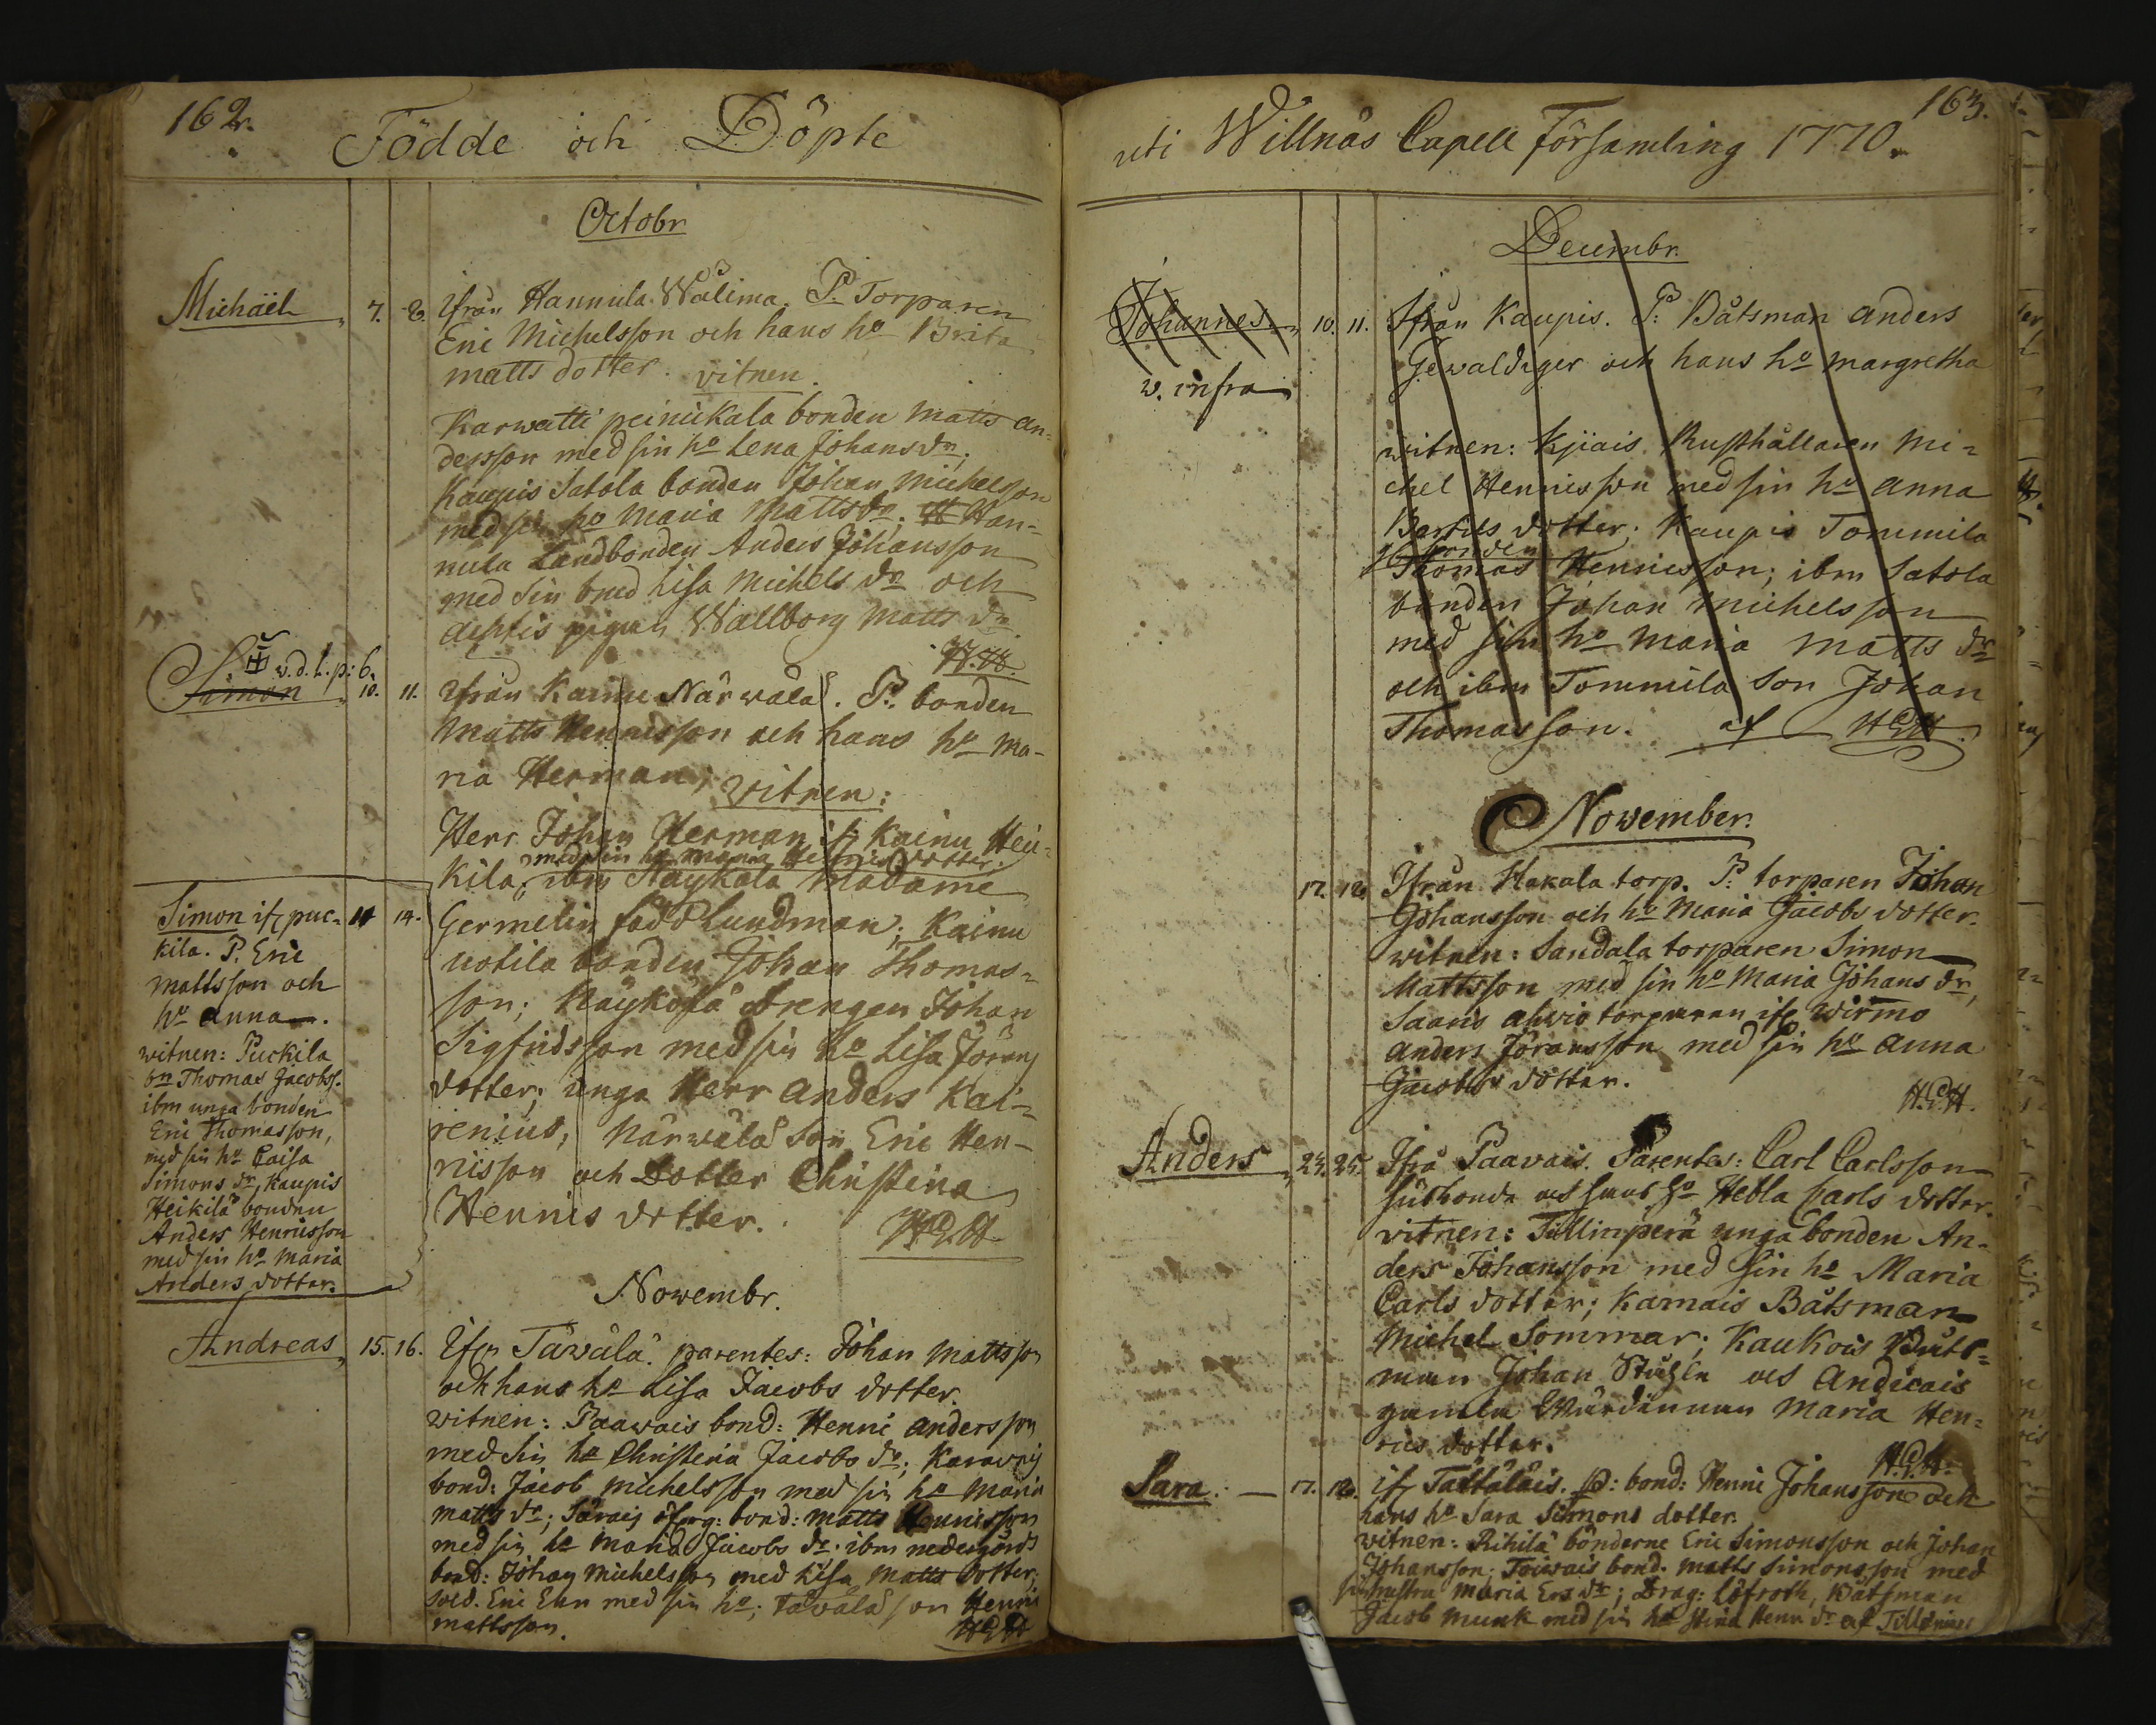 162.
Födde och Döpte
Octobr
Michaël 7. 8. Ifrån Hannula Wälima. P. Torparen
Eric Michelsson och hans ho Brita
matts dotter. vitnen.
Karwatti peinickala bonden Matts an=
dersson med sin ho Lena Johans dr;
Kaupis Satola bonden Johan Michelsson
med sin ho Maria Matts dr; Han=
nula Landbonden Anders Johansson
med sin Lisa Michels dr och
pigan Wallborg Matts dr
v.d.l. p: 6.
Simon 10. 11. Ifrån Kainu Närwälä. P. bonden
Matts Hennisson och hans ho Ma-
ria Herman; witnen:
Herr Johan Herman if Kainu Hei=
med sin ho Hennis dotter.
kila; ibm Näykälä Madame
Germelin född Lundman; Kainu
uotila bonden Johan Thomas=
son; Näykälä drengen Johan
Sigfridsson med sin ho Lisa Jörans
dotter; unga Herr Anders Kai=
renius, Närwälä son Eric Hen-
nisson och Dotter Christina
Hennis dotter. H.E.H.
Simon if puc= 14.
kila. P. Eric
Mattsson och
ho Anna.
witnen: Puckila
bn Thomas Jacobss.
ibm unga bonden
Eric Thomasson,
med sin ho Caisa
Simons dr, Kaupis
Heikilä bonden
Anders Hennisson
med sin ho Maria
Anders dotter.
Novembr.
Andreas 15. 16. Ifrn Täwälä. parentes: Johan Mattsson
och hans ho Lisa Jacobs dotter.
witnen: Paawais bond: Henric andersson
med sin ho Christina Jacobs dr; Karavais
bond: Jacob Michelsson med sin ho Maria
Matts dr; bond: Matts Hennisson
med sin ho Maria Jacobs dr. ibm nedergårds
bond: Johan Michelsson med Lisa Matts dotter;
sold. Eric Ekn med sin ho; Tävälä son Henric
mattsson. H.E.H
163.
uti Willnäs Capell Församling 1770.
Decembr.
Johannes 10. 11. Ifrån Kaupis. P: Båtsman Anders
v. infra
Gewaldiger och hans ho Margretha
witnen: Kjiais Rusthållaren Mi=
chel Hennisson med sin ho Anna
Bertils dotter; Kaupis Tommila
bonden
Thomas Hennisson; ibm Satola
bonden Johan Michelsson
med sin ho Maria Matts dr
och ibm Tommila son Johan
Thomasson. af H.E.H.
November.
17. 18. Ifrån Hakala torp. P: torparen Johan
Johansson och ho Maria Jacobs dotter.
witnen: Sandala torparen Simon
Mattsson med sin ho Maria Johans dr,
Saaris ahvio torparen ifr Wirmo
Anders Jöransson med sin ho Anna
Jacobs dotter. H.E.H.
Anders 24. 25. Ifrå Paavais. Parentes: Carl Carlsson
ho Hebla Carls dotter.
witnen: Tillinperä unga bonden An-
ders Johansson med sin ho Maria
Carls dotter; Karnais Båtsman
Michel Sommar; Kaukois Båts=
man Johan Ståhle och Andicais
gamla Wärdinnan Maria Hen=
rics dotter. H.E.H.
Sara. 17. 18. ifr Tättäläis. P: bond: Henric Johansson och
hans ho Sara Simons dotter.
witnen: Rihilä bönderne Eric Simonsson och Johan
Johansson; Toiwais bond. Matts Simonsson med
sin hustru Maria Ers dr; Drag: Löfroth, Båtsman
Jacob Munk med sin ho Stina Henr dr af